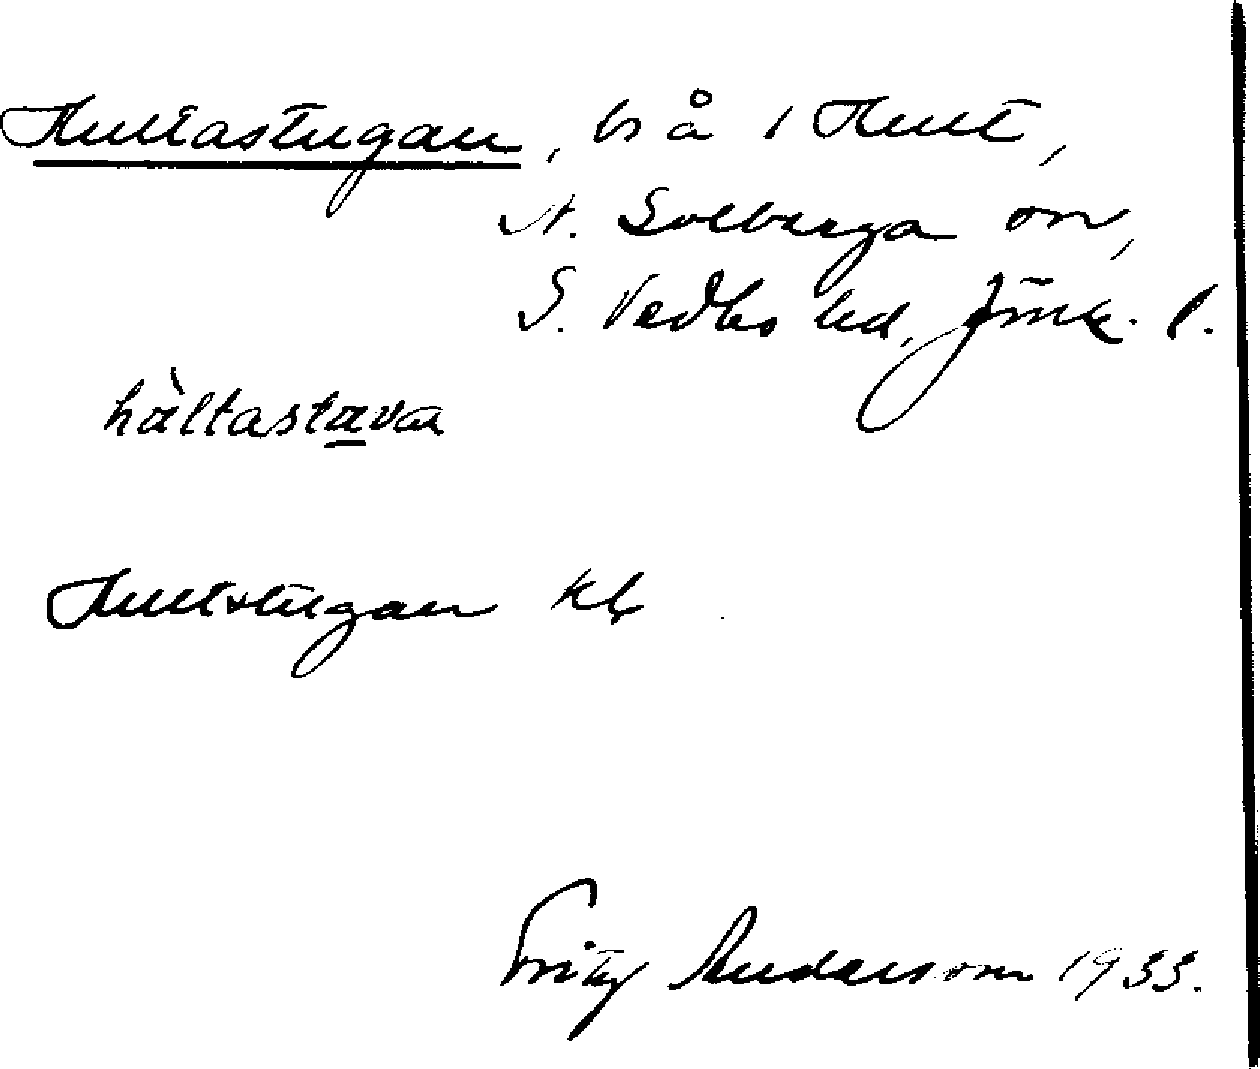 Hultastugan, bs å 1 Hult,
N. Solberga sn,
S. Vedbo hd, Jönk. l.
hältastavan
Hultstugan kb
Fritz Anderson 1933.